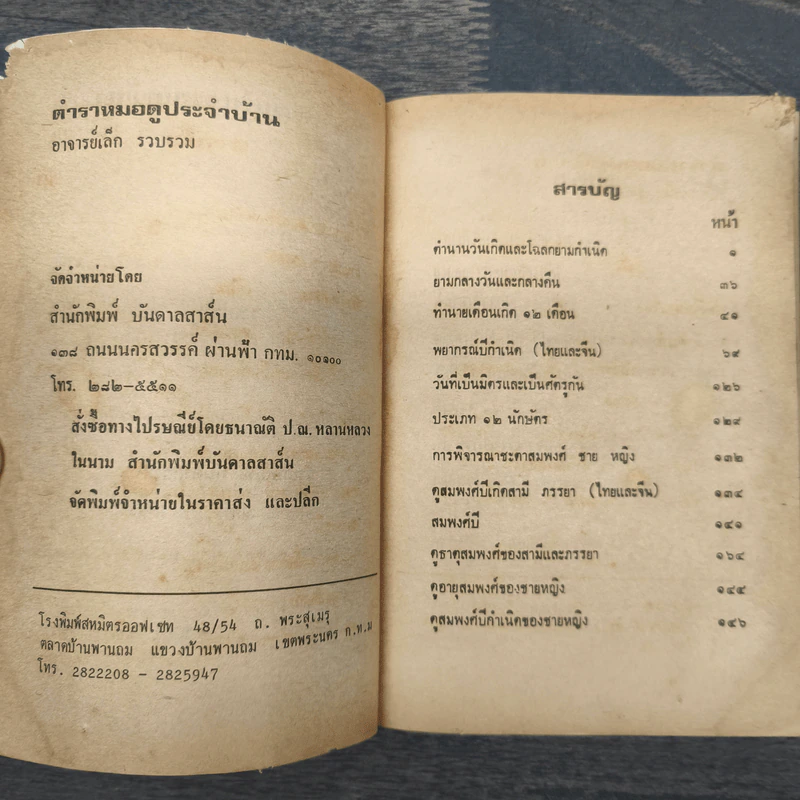 ตำราหมอดูประจำบ้าน
อาจารย์เล็ก รวบรวม
จัดจำหน่ายโดย
สำนักพิมพ์ บันดาลสาส์น
๑๓๘ ถนนนครสวรรค์ ผ่านฟ้า กทม. ๑๐๑๐๐
โทร. ๒๘๒-๕๕๑๑
สั่งซื้อทางไปรษณีย์โดยธนาณัติ ป.ณ. หลานหลวง
ในนาม สำนักพิมพ์บันดาลสาส์น
จัดพิมพ์จำหน่ายในราคาส่ง และปลีก
โรงพิมพ์สหมิตรออฟเซท 48/54 ถ. พระสุเมรุ
ตลาดบ้านพานถม แขวงบ้านพานถม เขตพระนคร ก.ท.ม
โทร. 2822208 - 2825947
สารบัญ
หน้า
ตำนานวันเกิดและโฉลกยามกำเนิด ๑
ยามกลางวันและกลางคืน ๓๖
ทำนายเดือนเกิด ๑๒ เดือน ๔๑
พยากรณ์ปีกำเนิด (ไทยและจีน) ๖๙
วันที่เป็นมิตรและเป็นศัตรูกัน ๑๒๖
ประเภท ๑๒ นักษัตร ๑๒๙
การพิจารณาชะตาสมพงศ์ ชาย หญิง ๑๓๒
ดูสมพงศ์ปีเกิดสามี ภรรยา (ไทยและจีน) ๑๓๔
สมพงศ์ปี ๑๔๑
ดูธาตุสมพงศ์ของสามีและภรรยา ๑๖๔
ดูอายุสมพงศ์ของชายหญิง ๑๔๕
ดูสมพงศ์ปีกำเนิดของชายหญิง ๑๔๖